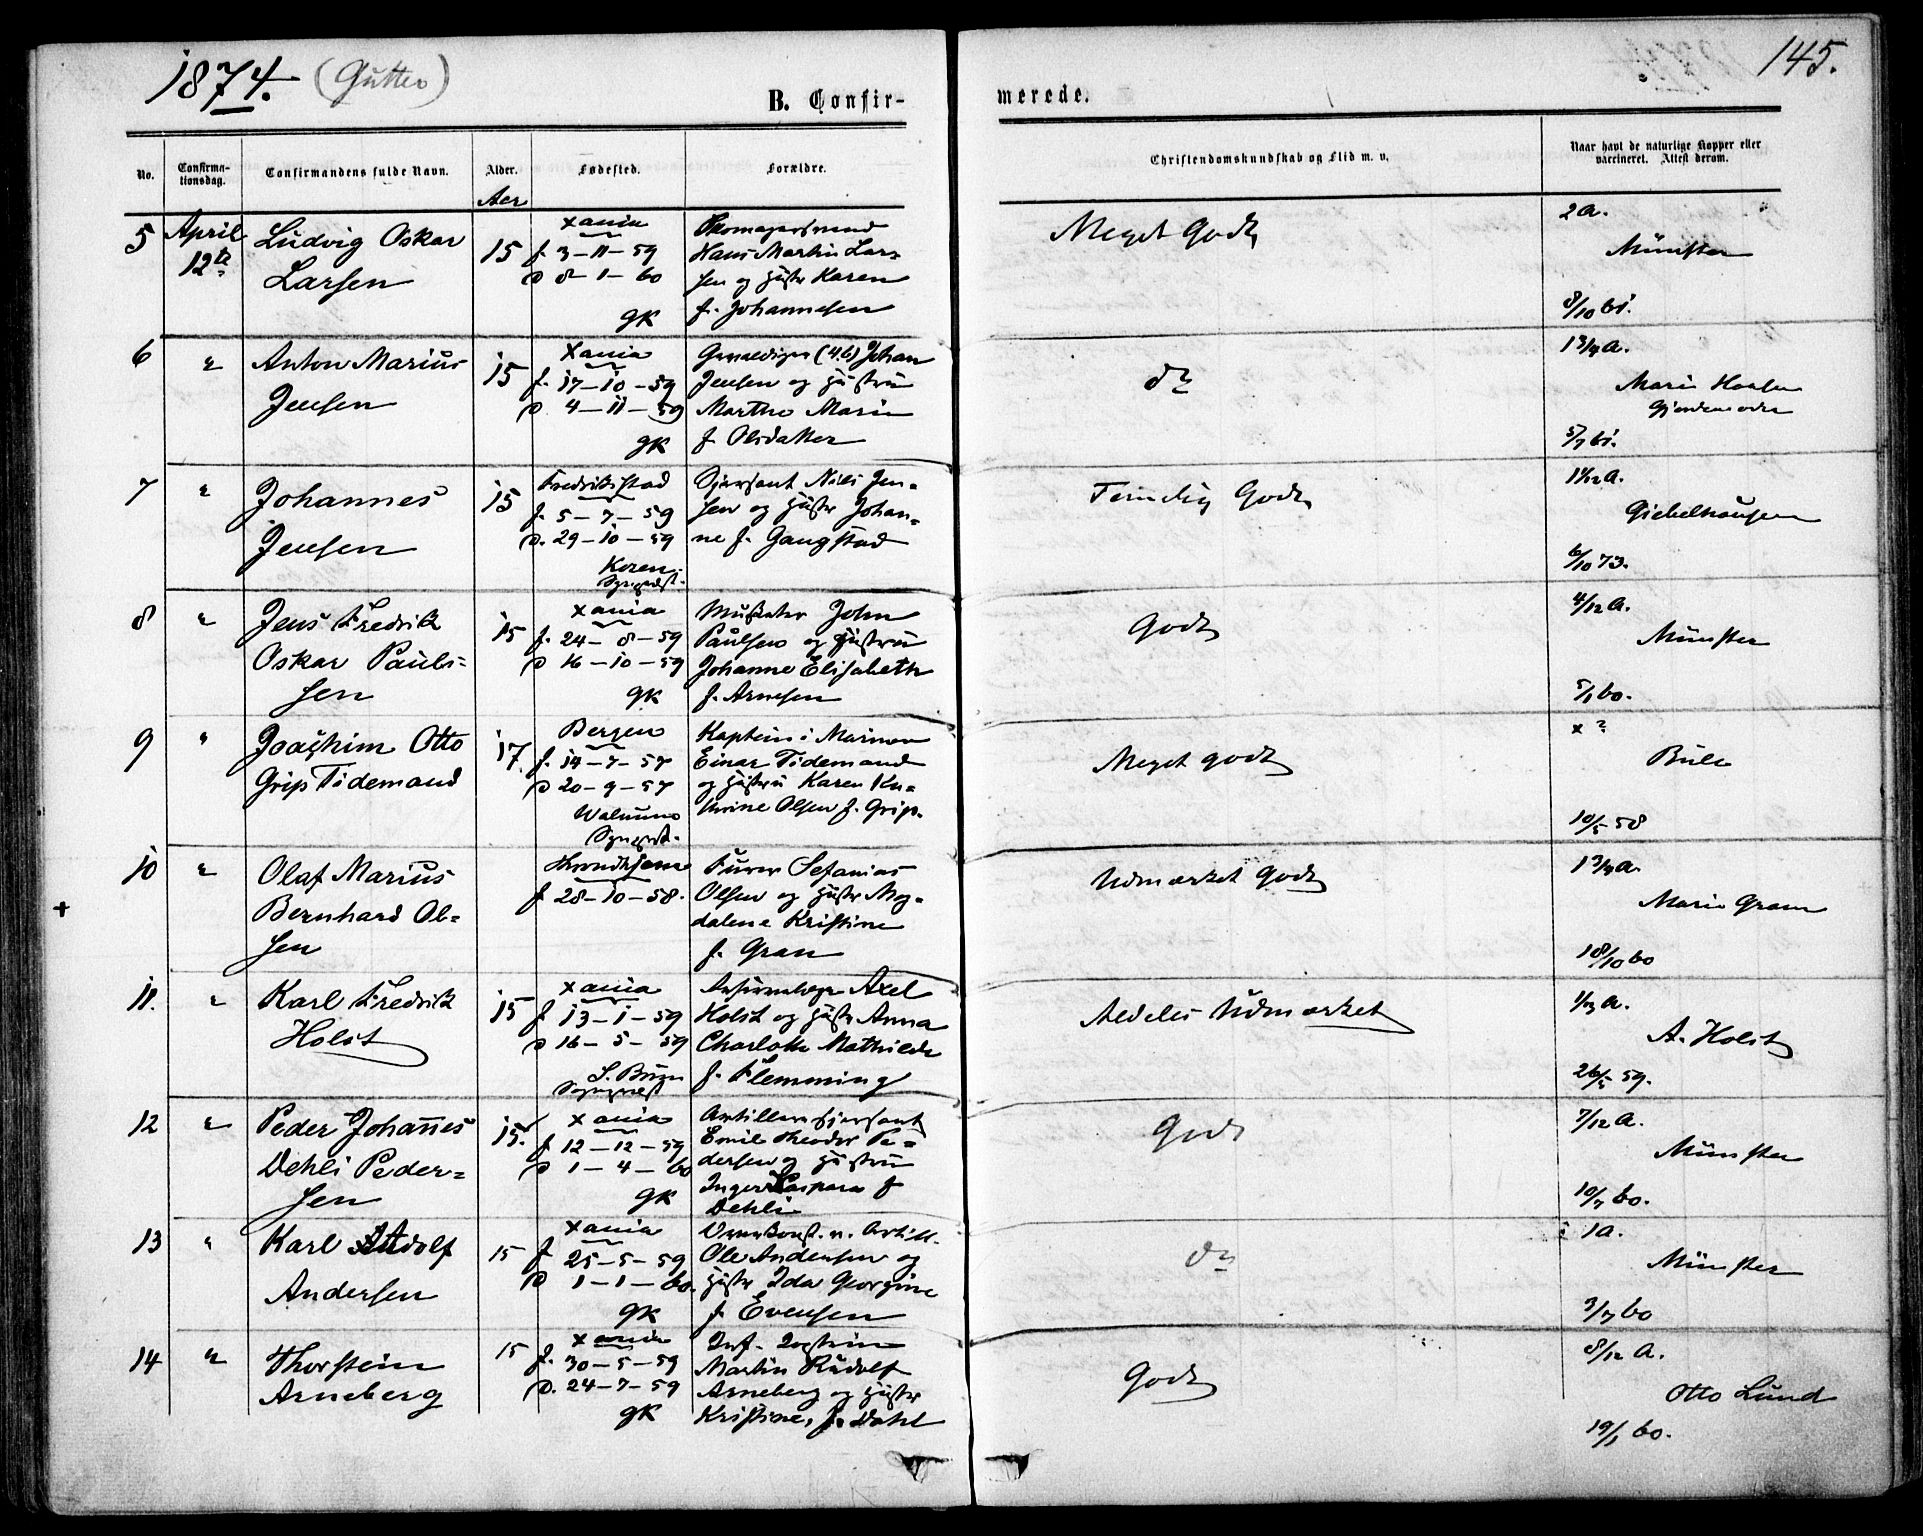 1874. (Gutter)
145.
B. Confir-
merede.
No.
Confirma-
tionsdag.
Confirmandens fulde Navn.
Alder.
Aar
Fødested.
Forældre.
Christendomskundskab og Flid m. v.
Naar havt de naturlige Kopper eller
vaccineret. Attest derom.
5
April
12te
Ludvig Oskar
Larsen
15
Xania
f. 3-11-59
D 8-1-60
GK
Skomagersvend
Hans Martin Lar-
sen og Hustr Karen
f. Johannesen
Meget Godt
2 a.
Münster
8/10 61.
6
"
Anton Marius
Jensen
15
Xania
f. 17-10-59
D. 4-11-59
GK
Gevaldiger (4.b) Johan
Jensen og Hustru
Marthe Marie
f. Olsdatter
do
1 3/4 a.
Marie Hansen
Gjordemoder
5/7 61.
7
"
Johannes
Jensen
15
Fredrikstad
f. 5-7-59
D. 29-10-59
Koren
Sognepst.
Sjersant Niels Jen-
sen og Hustr Johan-
ne f. Gangstad
Temelig Godt
11/12 a.
Giebelhausen
6/10 73.
8
"
Jens Fredrik
Oskar Pauls-
sen
15
Xania
f. 24-8-59
D 16-10-59
GK
Musketer John
Paulsen og Hustru
Johanne Elisabeth
f. Arnesen
Godt
4/12 a.
Münster
5/1 60.
9
"
Joachim Otto
Grip Tidemand
17.
Bergen
f. 14-7-57
D 20-9-57
Sognepst.
Kaptein i Marinen
Einar Tidemand
og Hustru Karen Ka-
thrine Olsen f. Grip.
Meget godt
x ?
Bull
10/5 58
10
"
Olaf Marius
Bernhard Ol-
sen
+
Throndhjem
f 28-10-58.
Furer Sefanias
Olsen og Hustr Mag-
dalene Kristine
f. Gran
Udmærket Godt
1 3/4 a.
Marie Gram
18/10 60
11.
"
Karl Fredrik
Holst
15
Xania
f 13-1-59
D 16-5-59
Sognepst
Axel
Holst og Hustr Anna
Charlotte Mathilde
f. Flemming
Aldeles Udmærket
1/3 a.
A. Holst
26/5 59.
12
"
Peder Johannes
Dehli Peder-
sen
15.
Xania
f 12-12-59
D 1-4-60
GK
Artillerisjersant
Emil Theodor Pe-
dersen og Hustru
Inger Kaspara f
Dehli
Godt
7/12 a.
Münster
10/7 60.
13
"
Karl Adolf
Andersen
15
Xania
f. 25-5-59
D 1-1-60.
GK
Ole Andersen og
Hustr Ida Georgine
f. Evensen
do
1 a.
Münster
3/7 60
14
"
Thorstein
Arneberg
15
Xania
f. 30-5-59
D. 24-7-59
GK
Inf.
Martin Rudolf
Arneberg og Hustr
Kristine, f. Dahl
Godt
8/12 a.
Otto Lund
19/1 60.